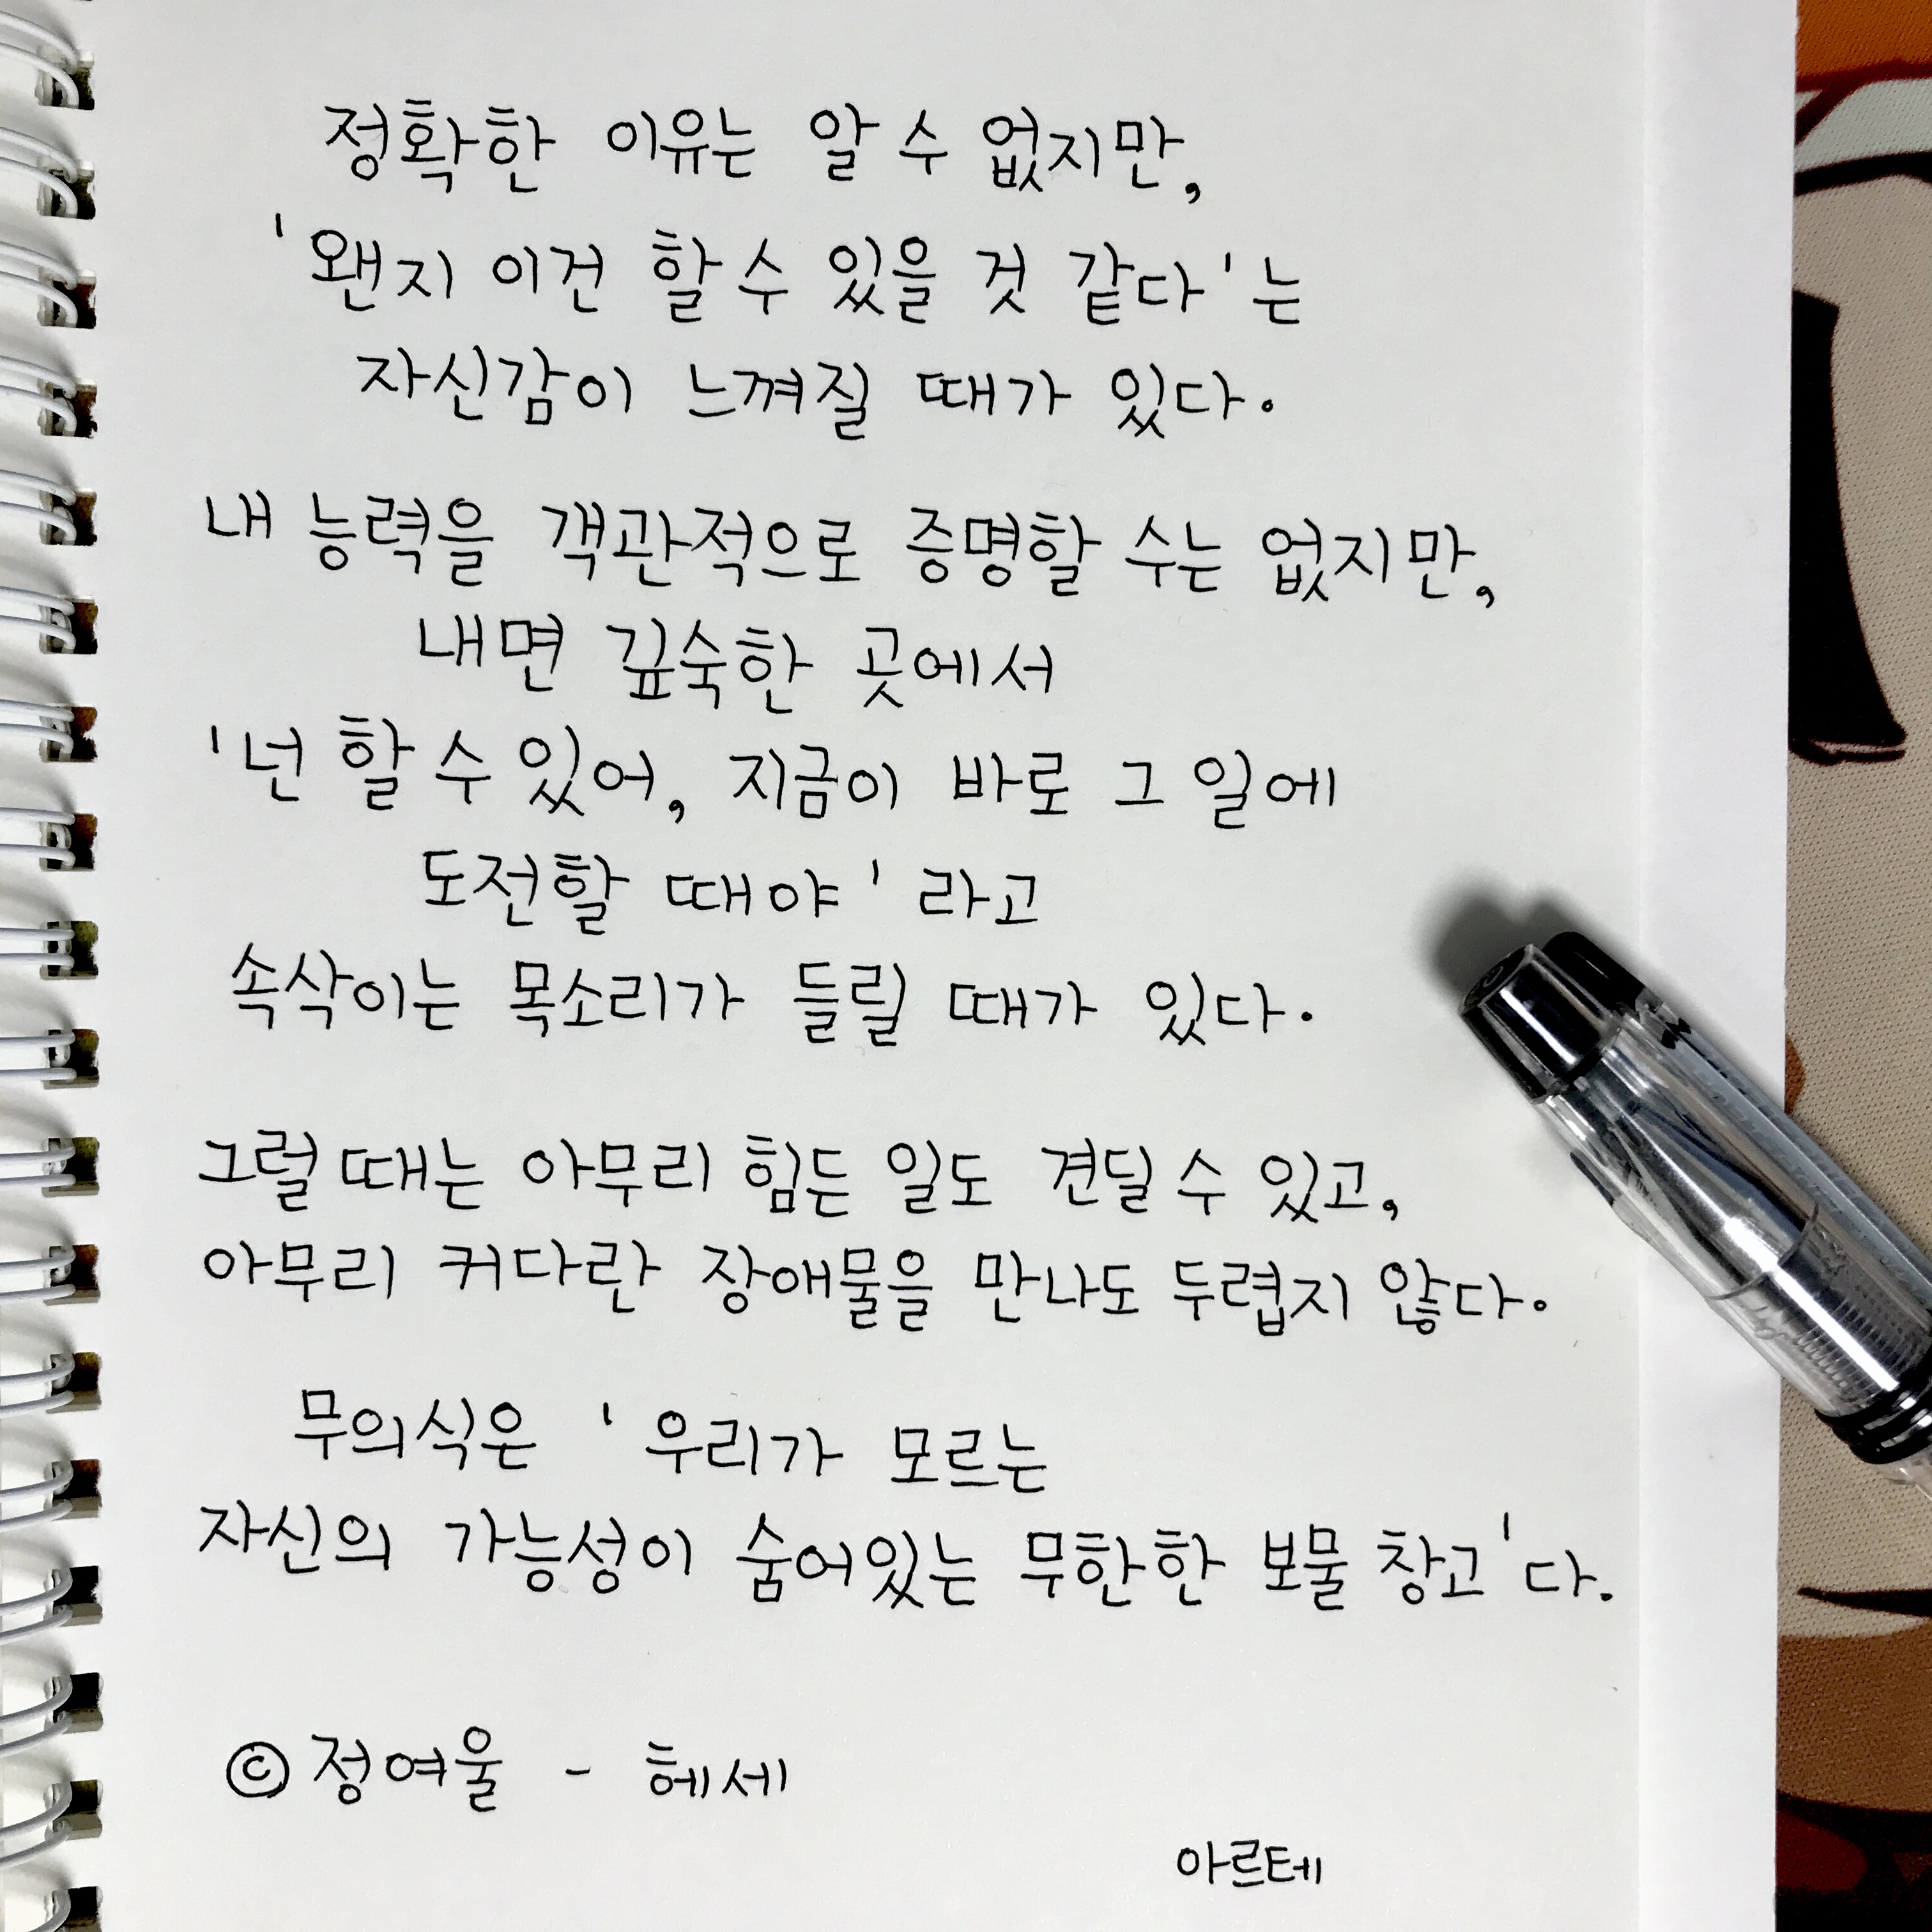 정확한 이유는 알 수 없지만,
'왠지 이건 할 수 있을 것 같다'는
자신감이 느껴질 때가 있다.
내 능력을 객관적으로 증명할 수는 없지만,
내면 깊숙한 곳에서
'넌 할 수 있어, 지금이 바로 그 일에
도전할 때야'라고
속삭이는 목소리가 들릴 때가 있다.
그럴 때는 아무리 힘든 일도 견딜 수 있고,
아무리 커다란 장애물을 만나도 두렵지 않다.
무의식은 '우리가 모르는
자신의 가능성이 숨어있는 무한한 보물 창고'다.
© 정여울 - 헤세
아르테